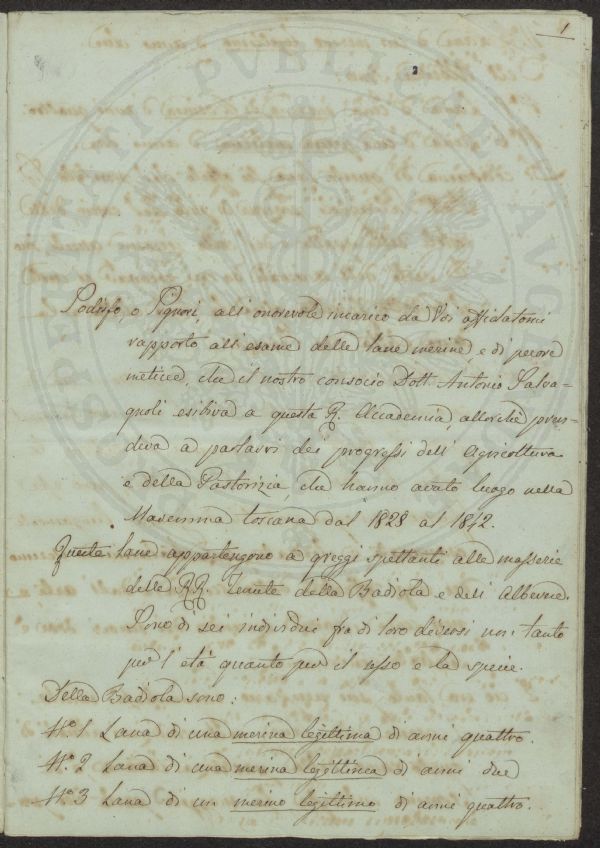 1
2
Podisfo, o Signori, all'onorevole incarico da Voi affidatomi
rapporto all'esame delle lane merine, e di pecore
meticce, che il nostro consocio Dott. Antonio Salva-
gnoli esibiva a questa R. Accademia, allorchè pren-
deva a parlarvi dei progressi dell'Agricoltura
e della Pastorizia, che hanno avuto luogo nella
Maremma toscana dal 1828 al 1842.
Queste lane appartengono a greggi spettanti alle masserie
delle RR. Tenute della Badiola e dell'Alberese.
Sono di sei individui fra di loro diversi non tanto
per l'età quanto per il sesso e la specie.
Della Badiola sono:
N.o 1 Lana di una merina legittima di anni quattro.
N.o 2 Lana di una merina legittima di anni due
N.o 3 Lana di un merino legittimo di anni quattro.